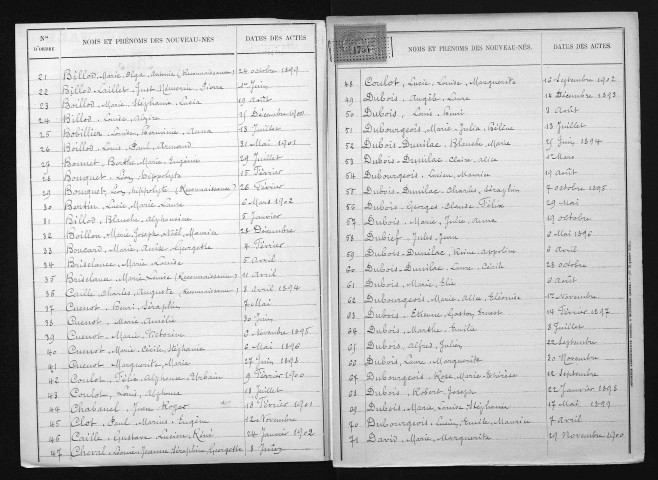 Nos D'ORDRE NOMS ET PRÉNOMS DES NOUVEAU-NÉS DATES DES ACTES
21 Billod, Marie Olga Antonia (Reconnaissance) 24 octobre 1899
22 Billod-Laillet, Just Pierre 1er Juin
23 Boillod, Marie Stéphanie Lucia 19 août
24 Billod, Louise Alzire 25 Décembre 1900
25 Bobillier, Louise, Anna 13 Juillet
26 Billod, Louis, Paul, Armand 31 Mai 1901
27 Bonnet, Berthe Marie Eugénie 29 Juillet
28 Bouquet, Léon, hippolyte 15 Février
29 Bouquet, Léon, hippolyte (Reconnaissance) 26 Février
30 Bontin, Lucie Marie Laure 6 Mars 1902
31 Billod, Blanche, Alphonsine 5 Janvier
32 Boillon, Marie Joseph Noël, Maurice 28 Décembre
33 Boucard, Marie, Anise Georgette 4 Février
34 Briselance, Marie Louise 5 avril
35 Briselance, Marie Louise (Reconnaissance) 11 avril
36 Caille, Charles, Auguste (Reconnaissance) 8 avril 1894
37 Cuenot, Henri, Séraphin 7 Mai
38 Cuenot, Marie Amélie 30 Juin
39 Cuenot, Marie, Victorine 0 Novembre 1895
40 Cuenot, Marie, Cécile, Stéphanie 6 Mai 1896
41 Cuenot, Marguerite, Marie 27 Juin 1898
42 Coulot, Félix, Alphonse Urbain 9 Février 1900
43 Coulot, Louis, Alphonse 18 Juillet
44 Chabanel, Jean, Roger 13 Février 1901
45 Clot, Paul, Marius, Eugène 12 Novembre
46 Caille, Gustave Lucien, Réné 24 Janvier 1902
47 Cheval, Jeanne, Séraphine, Georgette 8 Juin
1754
NOMS ET PRÉNOMS DES NOUVEAU-NÉS. DATES DES ACTES.
48 Coulot, Lucie, Louise, Marguerite 16 Septembre 1902
49 Dubois, Angèle, Laure 14 Décembre 1893
50 Dubois, Louis, Henri 3 Août
51 Dubourgeois, Marie, Julia, Hélène 13 Juillet
52 Dubois-Dunilac, Blanche Marie 25 Juin 1894
53 Dubois-Dunilac, Claire, Alice Mars
54 Dubourgeois, Lucien, Maurice 19 août
55 Dubois-Dunilac, Charles, Séraphin 7 octobre 1895
56 Dubois, Georges, Claude, Félix 29 Mai
57 Dubois, Marie, Julie, Anna 19 octobre
58 Dubief, Jules, Jean 6 Mai 1896
59 Dubois-Dunilac, Reine, Appoline 6 avril
60 Dubois-Dunilac, Laure, Cécile 23 octobre
61 Dubois, Marie, Elie 6 août
62 Dubourgeois, Marie, Alice, Eléonise 12 Novembre
63 Dubois, Etienne, Gaston, Ernest 14 Février 1897
64 Dubois, Marthe, Emilie 3 Juillet
65 Dubois, Alfred, Julien 22 Septembre
66 Dubois, Laure, Marguerite 30 Novembre
67 Dubourgeois, Rose, Marie-Thérèse 12 Septembre
68 Dubois, Robert, Joseph 22 Janvier 1898
69 Dubois, Marie, Louise, Stéphanie 17 Mai 1899
70 Dubourgeois, Lucien, Emile, Maurice 7 avril
71 David, Marie, Marguerite 29 Novembre 1900